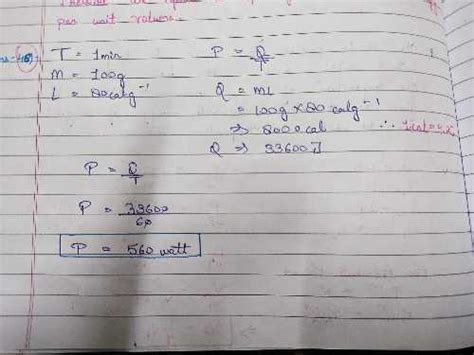 per unit volume.
T = 1min
M = 100g
L = 80calg⁻¹
P = Q/T
Q = mL
= 100g × 80 calg⁻¹
⇒ 8000cal
Q ⇒ 33600J
P = Q/T
P = 33600/60
P = 560 watt